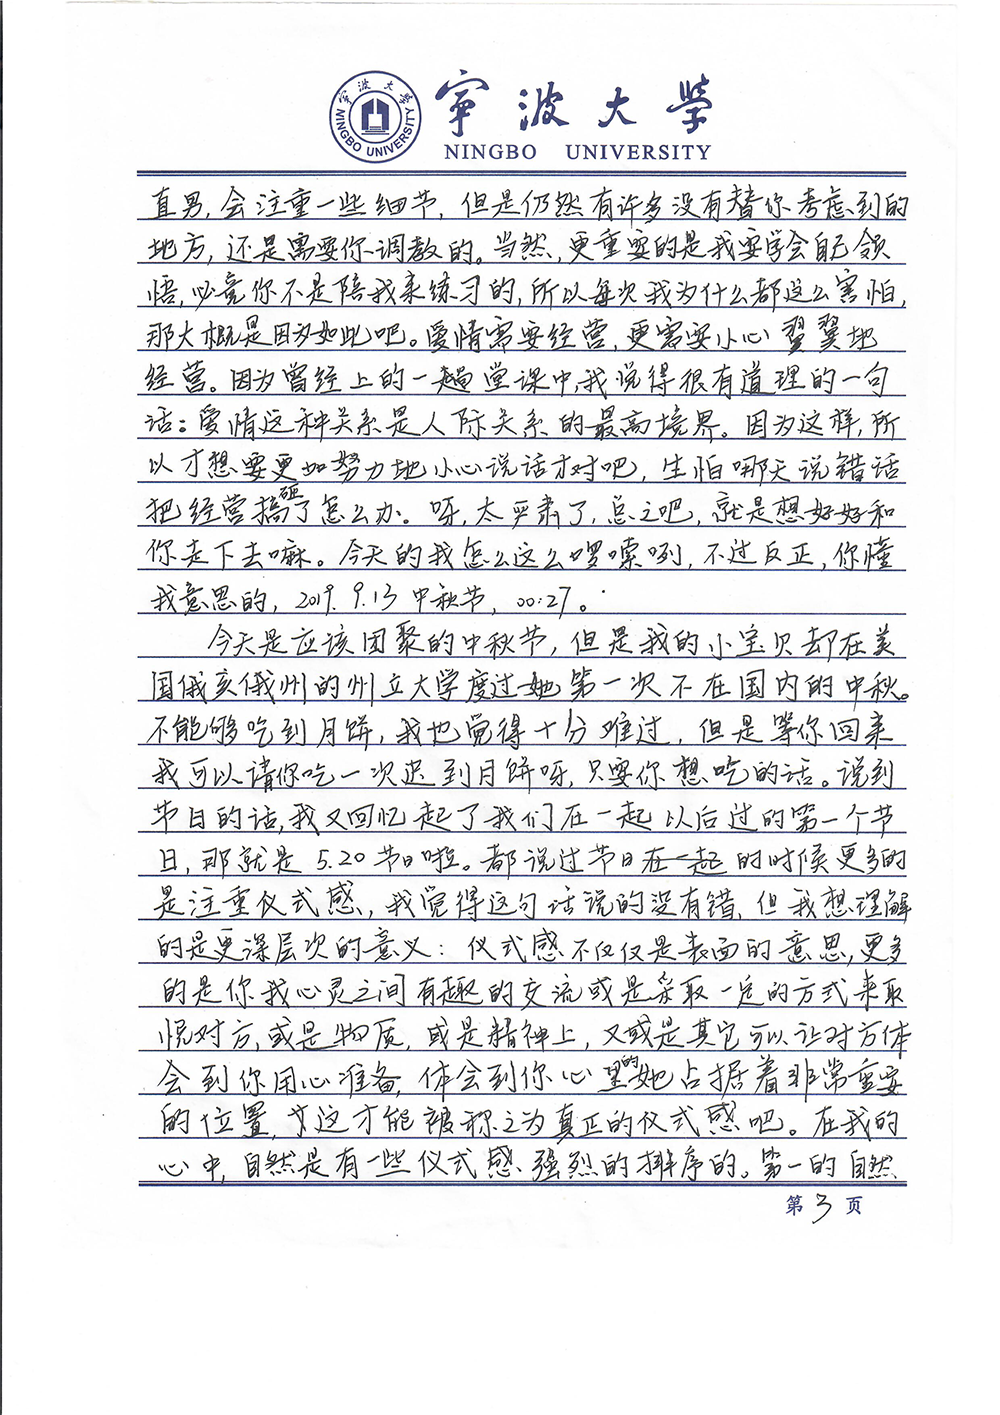 宁波大学
NINGBO UNIVERSITY
宁波大学
NINGBO UNIVERSITY
直男，会注重一些细节，但是仍然有许多没有替你考虑到的
地方，还是需要你调教的。当然，更重要的是我要学会自己领
悟，必竟你不是陪我来练习的，所以每次我为什么都这么害怕，
那大概是因为如此吧。爱情需要经营，更需要小心翼翼地
经营。因为曾经上的一堂课中，我觉得很有道理的一句
话：爱情这种关系是人际关系的最高境界。因为这样，所
以才想要更加努力地小心说话才对吧，生怕哪天说错话
把经营搞砸了怎么办。呀，太严肃了，总之吧，就是想好好和
你走下去嘛。今天的我怎么这么啰嗦咧，不过反正，你懂
我意思的，2019.9.13中秋节，00:27。
今天是应该团聚的中秋节，但是我的小宝贝却在美
国俄亥俄州的州立大学度过她第一次不在国内的中秋。
不能够吃到月饼，我也觉得十分难过，但是等你回来
我可以请你吃一次迟到月饼呀，只要你想吃的话。说到
节日的话，我又回忆起了我们在一起以后过的第一个节
日，那就是5.20节日啦。都说过节日在一起的时候更多的
是注重仪式感，我觉得这句话说的没有错，但我想理解
的是更深层次的意义：仪式感不仅仅是表面的意思，更多
的是你我心灵之间有趣的交流或是采取一定的方式来取
悦对方，或是物质，或是精神上，又或是其它可以让对方体
会到你用心准备，体会到你心里的她占据着非常重要
的位置，这才能被称之为真正的仪式感吧。在我的
心中，自然是有一些仪式感强烈的排序的。第一的自然
第3页